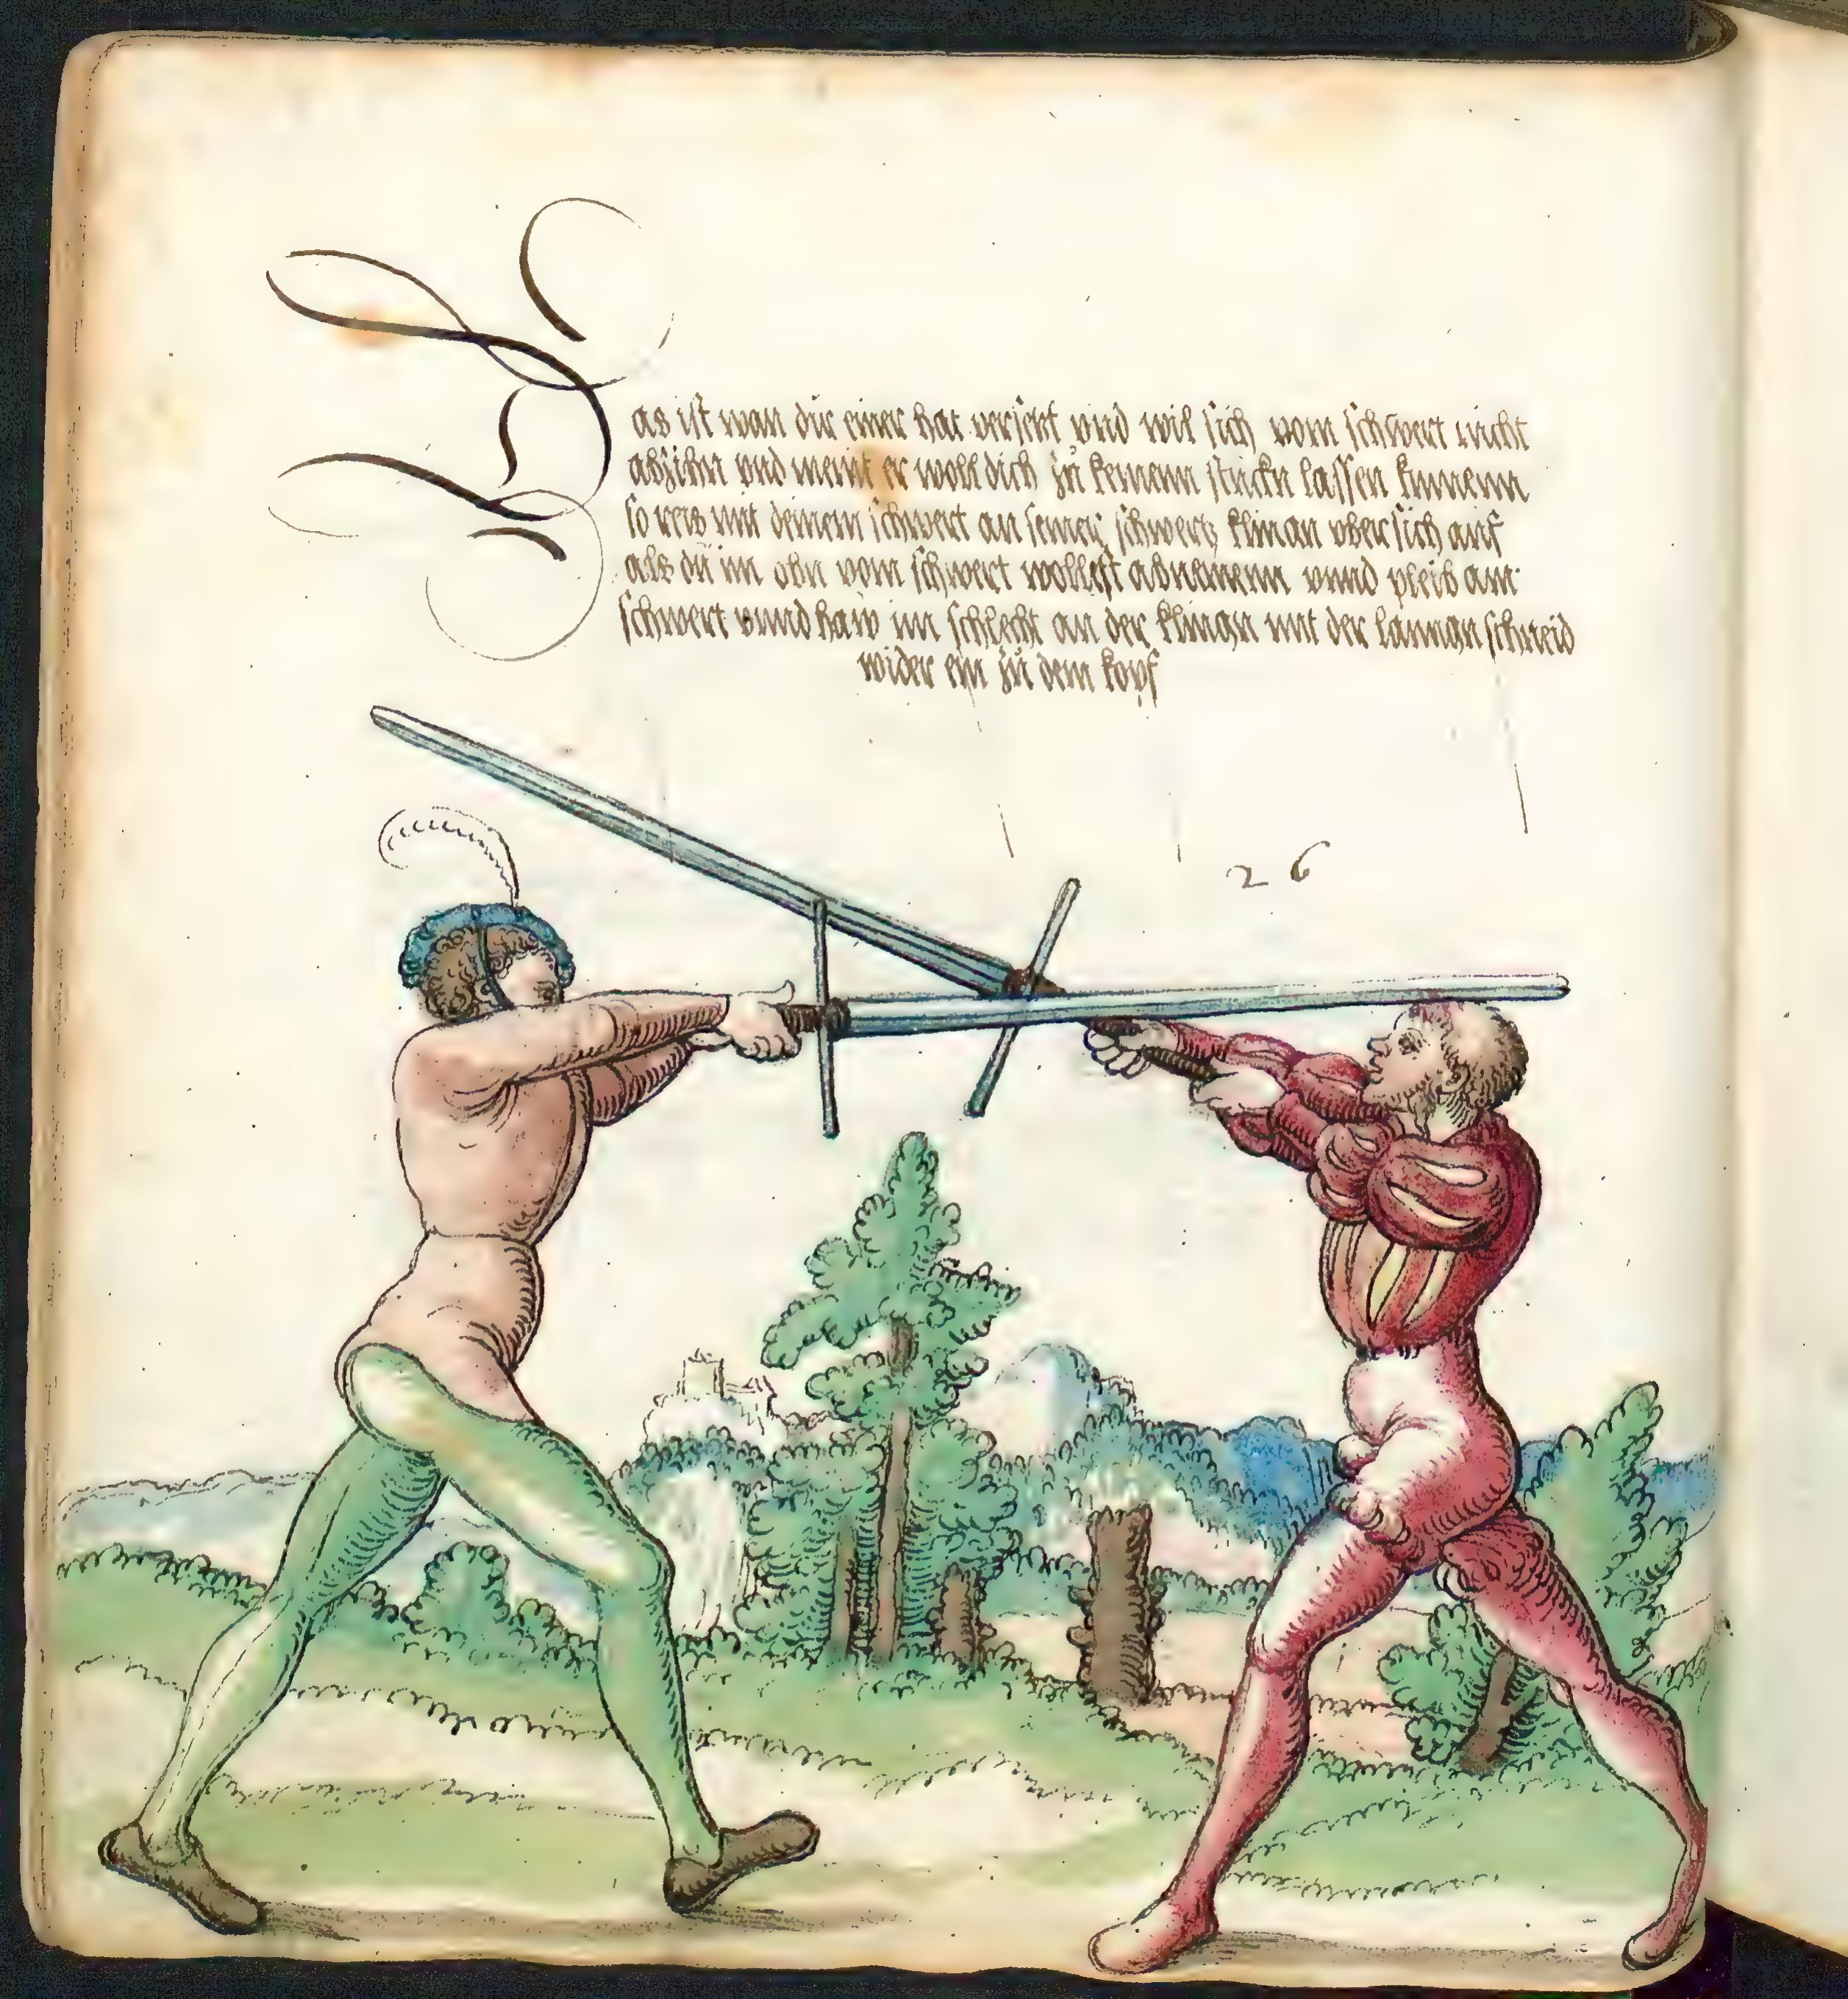 Das ist wan dir einer hat versetzt vnd wil sich vom schwert nicht
abzihn vnd meint er woll dich zu keinem stuckn lassen kumenn
so reis mit deinem schwert an seiner schwertz klingn vbersich auf
als du im obn vom schwert wollest abnemenn vnnd pleib am
schwert vnnd haw im schlecht an der klingn mit der langn schneid
wider ein zu dem kopf
26